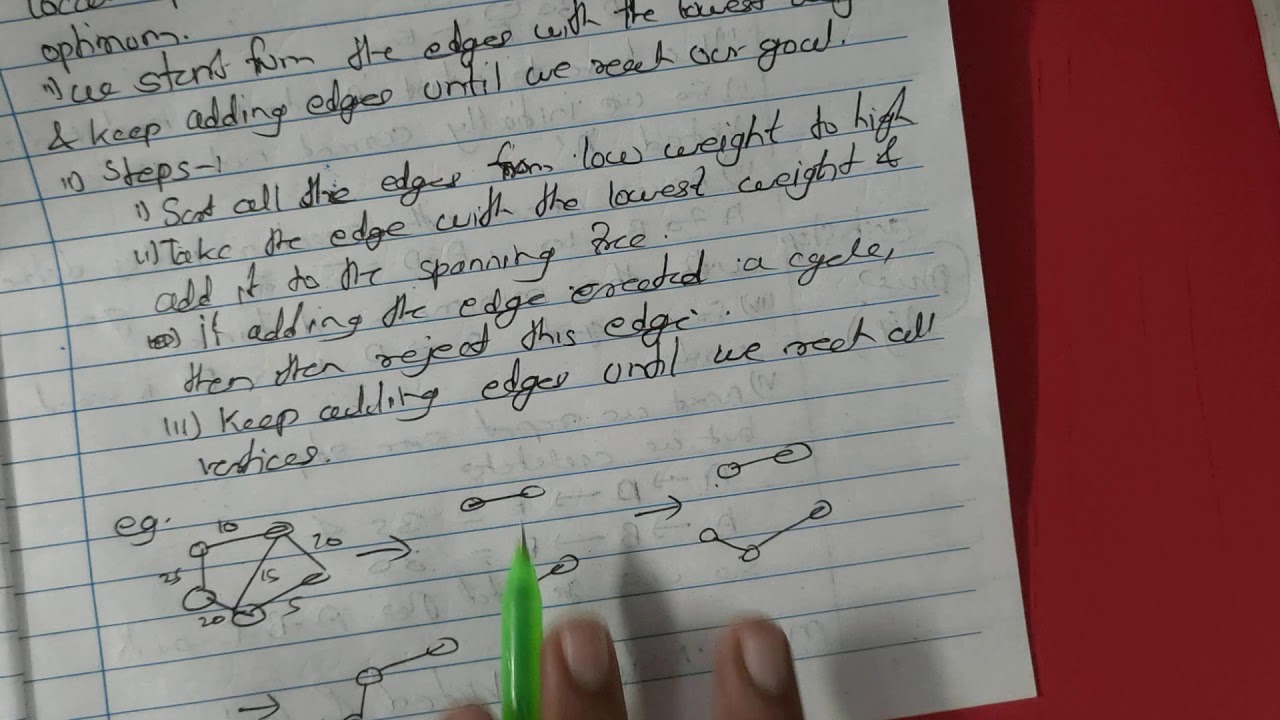 optimom.
ii) we start from the edges with the lowest
& keep adding edges until we reach our goal.
ii) Steps-1
i) Sort all the edges from low weight to high
ii) Take the edge with the lowest weight &
add it to the spanning tree.
if adding the edge created a cycle,
then then reject this edge.
iii) Keep adding edges until we reach all
vertices.
eg.
10
20
25
15
20
5